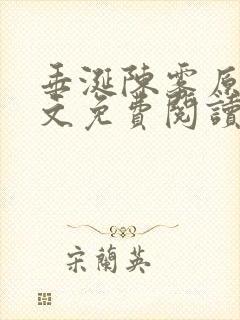 垂涎陳雾原
文免費閱讀
宋蘭英